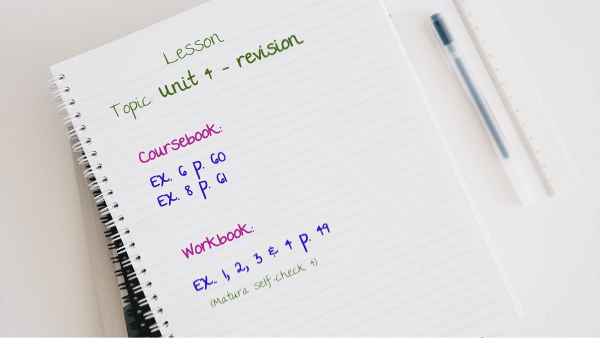 Lesson
Topic: unit 4 - revision
Coursebook:
Ex. 6 p. 60
Ex. 8 p. 61
Workbook:
Ex. 1, 2, 3 & 4 p. 49
(Matura self-check 4)